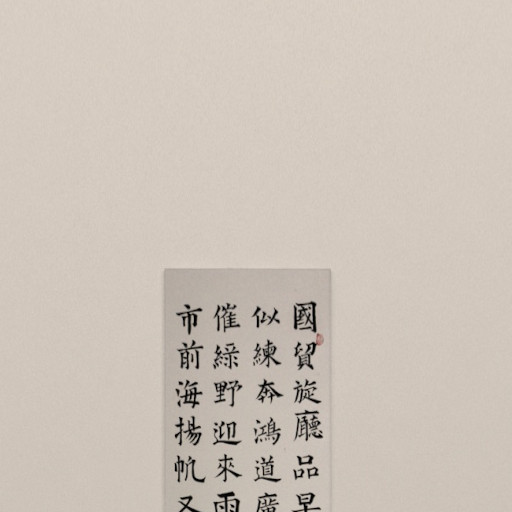 國貿旋廳品早
似練奔鴻道廣
催綠野迎來雨
市前海揚帆又